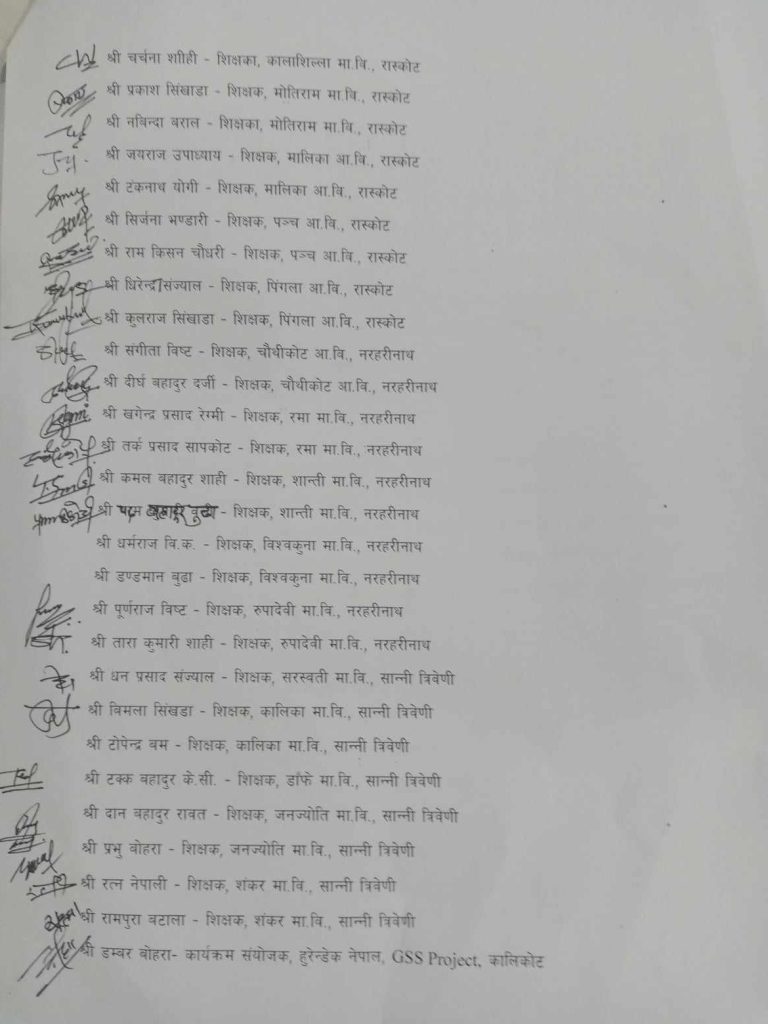 श्री चर्चना शाीही - शिक्षका, कालाशिल्ला मा.वि., रास्कोट
श्री प्रकाश सिंखाडा - शिक्षक, मोतिराम मा.वि., रास्कोट
श्री नविन्दा बराल - शिक्षका, मोतिराम मा.वि., रास्कोट
श्री जयराज उपाध्याय - शिक्षक, मालिका आ.वि., रास्कोट
श्री टंकनाथ योगी - शिक्षक, मालिका आ.वि., रास्कोट
श्री सिर्जना भण्डारी - शिक्षक, पञ्च आ.वि., रास्कोट
श्री राम किसन चौधरी - शिक्षक, पञ्च आ.वि., रास्कोट
श्री धिरेन्द्र संज्याल - शिक्षक, पिंगला आ.वि., रास्कोट
श्री कुलराज सिंखाडा - शिक्षक, पिंगला आ.वि., रास्कोट
श्री संगीता विष्ट - शिक्षक, चौथीकोट आ.वि., नरहरीनाथ
श्री दीर्घ बहादुर दर्जी - शिक्षक, चौथीकोट आ.वि., नरहरीनाथ
श्री खगेन्द्र प्रसाद रेग्मी - शिक्षक, रमा मा.वि., नरहरीनाथ
श्री तर्क प्रसाद सापकोट - शिक्षक, रमा मा.वि., नरहरीनाथ
श्री कमल बहादुर शाही - शिक्षक, शान्ती मा.वि., नरहरीनाथ
श्री पदम बहादुर बुढा - शिक्षक, शान्ती मा.वि., नरहरीनाथ
श्री धर्मराज वि.क. - शिक्षक, विश्वकुना मा.वि., नरहरीनाथ
श्री डण्डमान बुढा - शिक्षक, विश्वकुना मा.वि., नरहरीनाथ
श्री पूर्णराज विष्ट - शिक्षक, रुपादेवी मा.वि., नरहरीनाथ
श्री तारा कुमारी शाही - शिक्षक, रुपादेवी मा.वि., नरहरीनाथ
श्री धन प्रसाद संज्याल - शिक्षक, सरस्वती मा.वि., सान्नी त्रिवेणी
श्री विमला सिंखडा - शिक्षक, कालिका मा.वि., सान्नी त्रिवेणी
श्री टोपेन्द्र बम - शिक्षक, कालिका मा.वि., सान्नी त्रिवेणी
श्री टक्क बहादुर के.सी. - शिक्षक, डाँफे मा.वि., सान्नी त्रिवेणी
श्री दान बहादुर रावत - शिक्षक, जनज्योति मा.वि., सान्नी त्रिवेणी
श्री प्रभु बोहरा - शिक्षक, जनज्योति मा.वि., सान्नी त्रिवेणी
श्री रत्न नेपाली - शिक्षक, शंकर मा.वि., सान्नी त्रिवेणी
श्री रामपुरा बटाला - शिक्षक, शंकर मा.वि., सान्नी त्रिवेणी
श्री डम्बर बोहरा- कार्यक्रम संयोजक, हुरेन्डेक नेपाल, GSS Project, कालिकोट